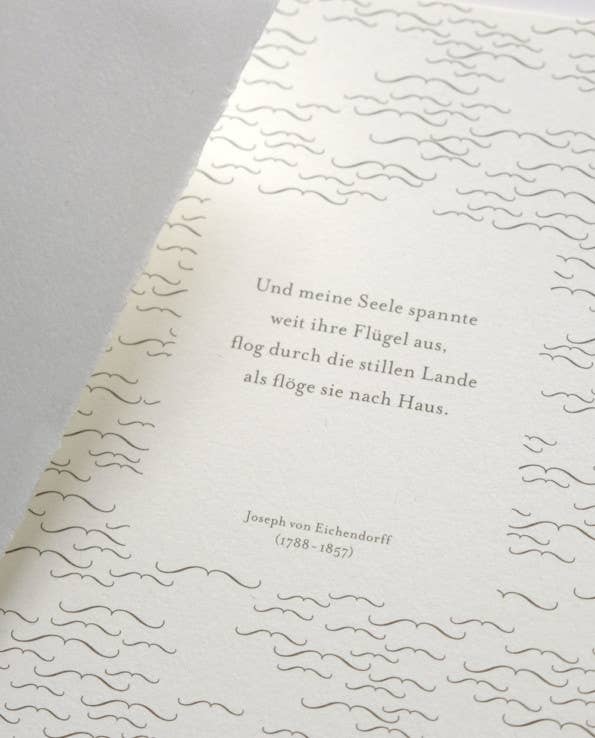 Und meine Seele spannte
weit ihre Flügel aus,
flog durch die stillen Lande
als flöge sie nach Haus.
Joseph von Eichendorff
(1788–1857)